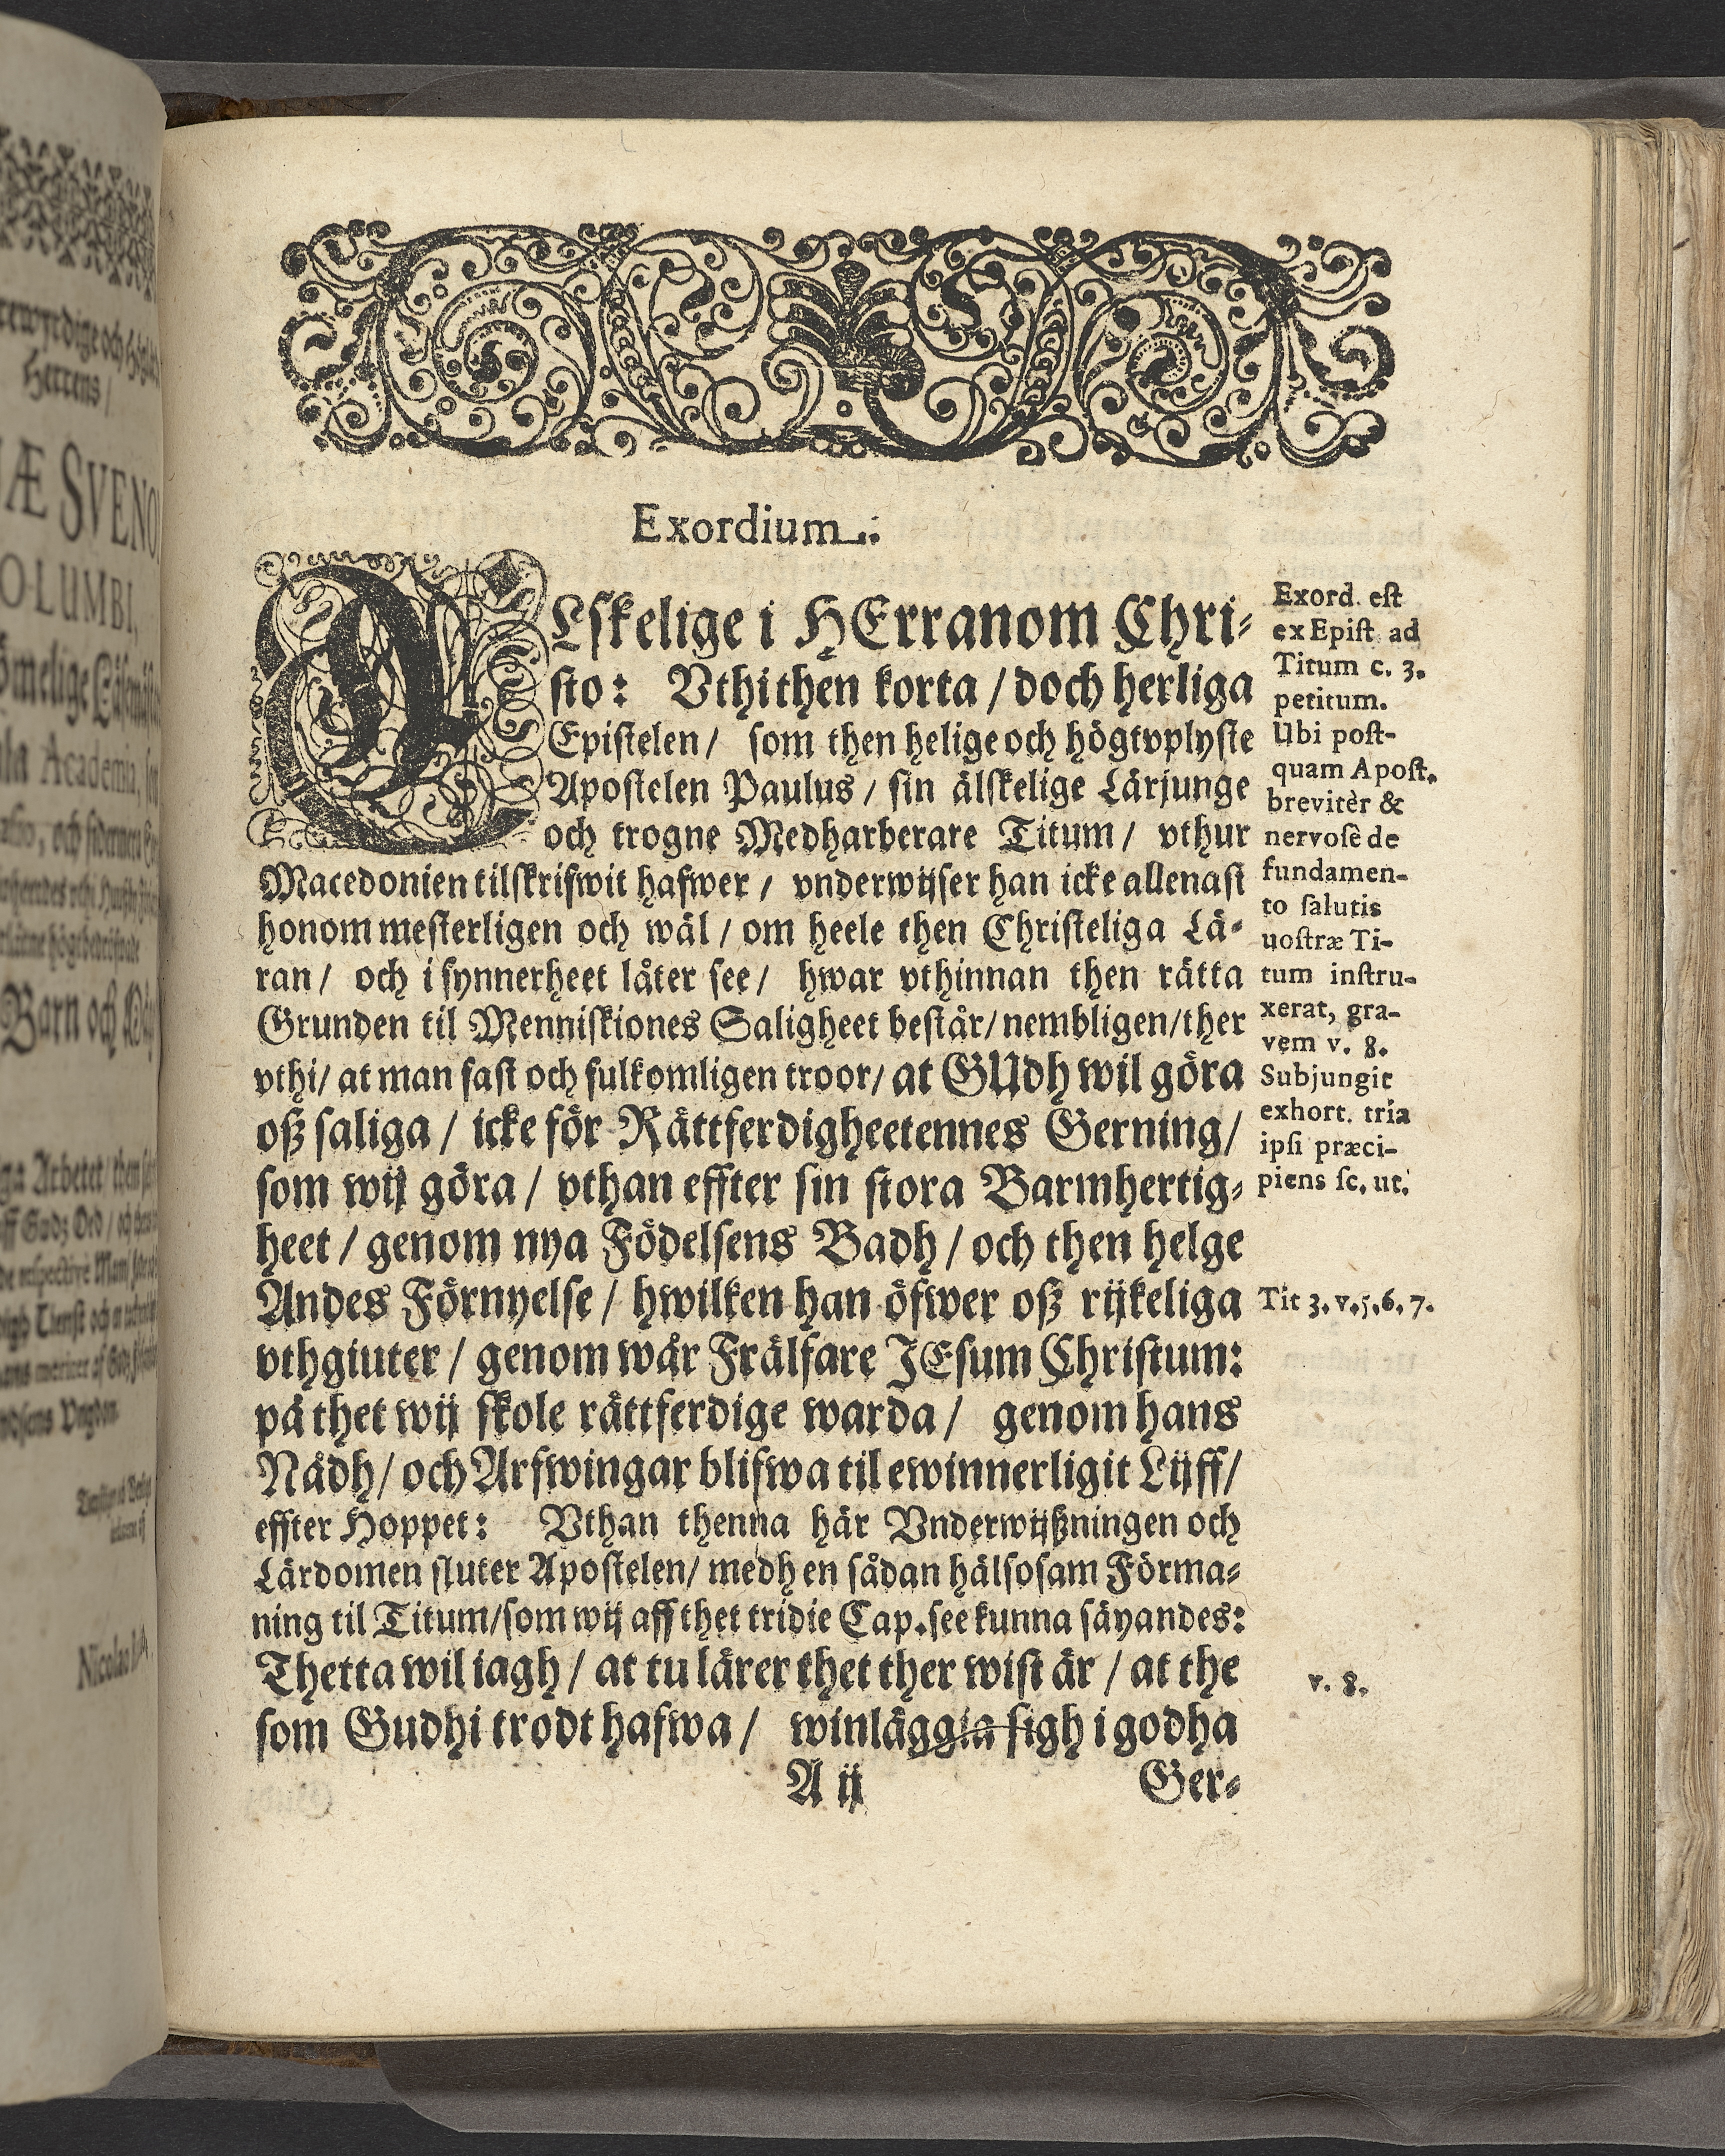 Exordium.
ÄLskelige i HErranom Chri-
sto: Vthi then korta / doch herliga
Epistelen / som then helige och högtvplyste
Apostelen Paulus / sin älskelige Lärjunge
och trogne Medharberare Titum / vthur
Macedonien tilskrifwit hafwer / vnderwijser han icke allenast
honom mesterligen och wäl / om heele then Christeliga Lä-
ran / och i synnerheet låter see / hwar vthinnan then rätta
Grunden til Menniskiones Saligheet består / nembligen / ther
vthi / at man fast och fulkomligen troor / at GUdh wil göra
oß saliga / icke för Rättferdigheetennes Gerning /
som wij göra / vthan effter sin stora Barmhertig-
heet / genom nya Födelsens Badh / och then helge
Andes Förnyelse / hwilken han öfwer oß rijkeliga
vthgiuter / genom wår Frälsare JEsum Christum:
på thet wij skole rättferdige warda / genom hans
Nådh / och Arfwingar blifwa til ewinnerligit Lijff /
effter Hoppet: Vthan thenna här Vnderwijßningen och
Lärdomen sluter Apostelen / medh en sådan hälsosam Förma-
ning til Titum / som wij aff thet tridie Cap. see kunna säyandes:
Thetta wil iagh / at tu lärer thet ther wist är / at the
som Gudhi trodt hafwa / winläggia sigh i godha
A ij
Ger-
Exord. est
ex Epist ad
Titum c. 3.
petitum.
Ubi post-
quam Apost.
brevitèr &
nervosè de
fundamen-
to salutis
uostræ Ti-
tum instru-
xerat, gra-
vem v. 8.
Subjungit
exhort. tria
ipsi præci-
piens sc. ut.
Tit 3. v. 5. 6. 7.
v. 8.
Herrens /
Æ SVENO
OLUMBI,
Academia,
Barn och
Arbetet / then
Nicolao